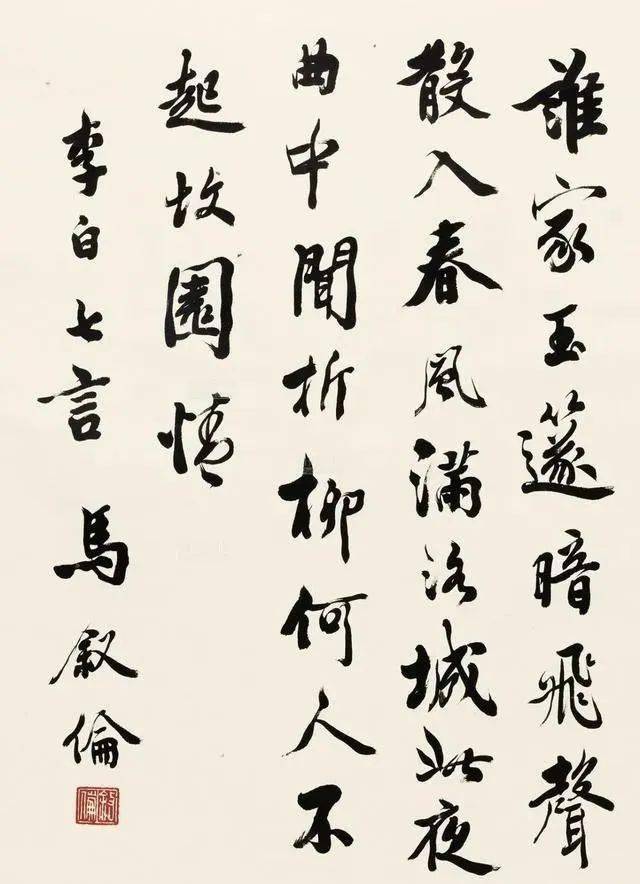 誰家玉篴暗飛聲
散入春風滿洛城此夜
曲中聞折柳何人不
起故園情
李白七言 馬叙倫